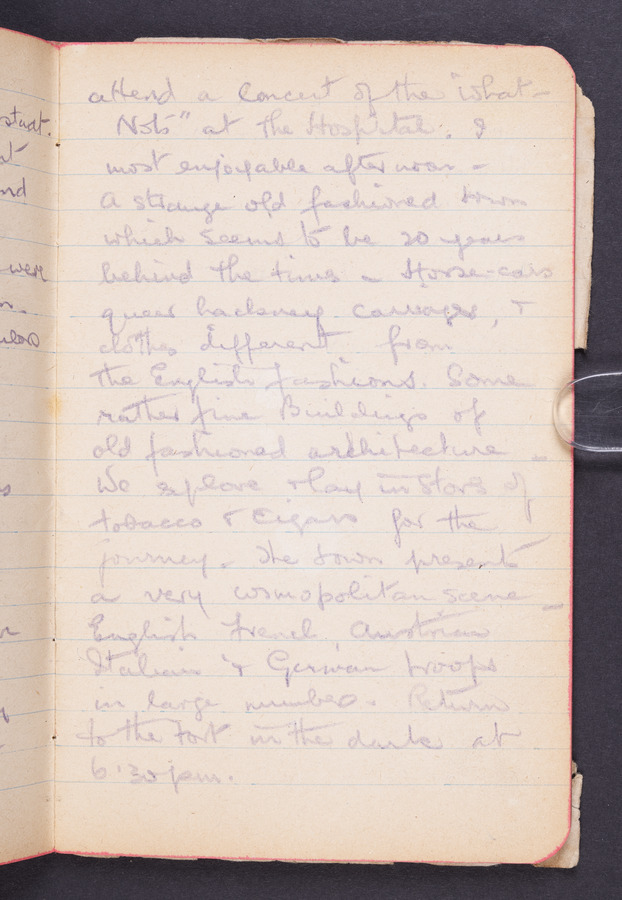 attend a Concert of the "What-
Nots" at the Hospital. A
most enjoyable afternoon -
A strange old fashioned town
which seems to be 20 years
behind the times - Horse-cars
queer hackney carriages, &
clothes different from
the English fashions. Some
rather fine Buildings of
old fashioned architecture -
We explore & lay in stores of
tobacco & Cigars for the
journey. The town presents
a very cosmopolitan scene -
English French Austrian
Italian & German troops
in large numbers. Return
to the Fort in the dark at
6.30 pm.
start.
nd
were